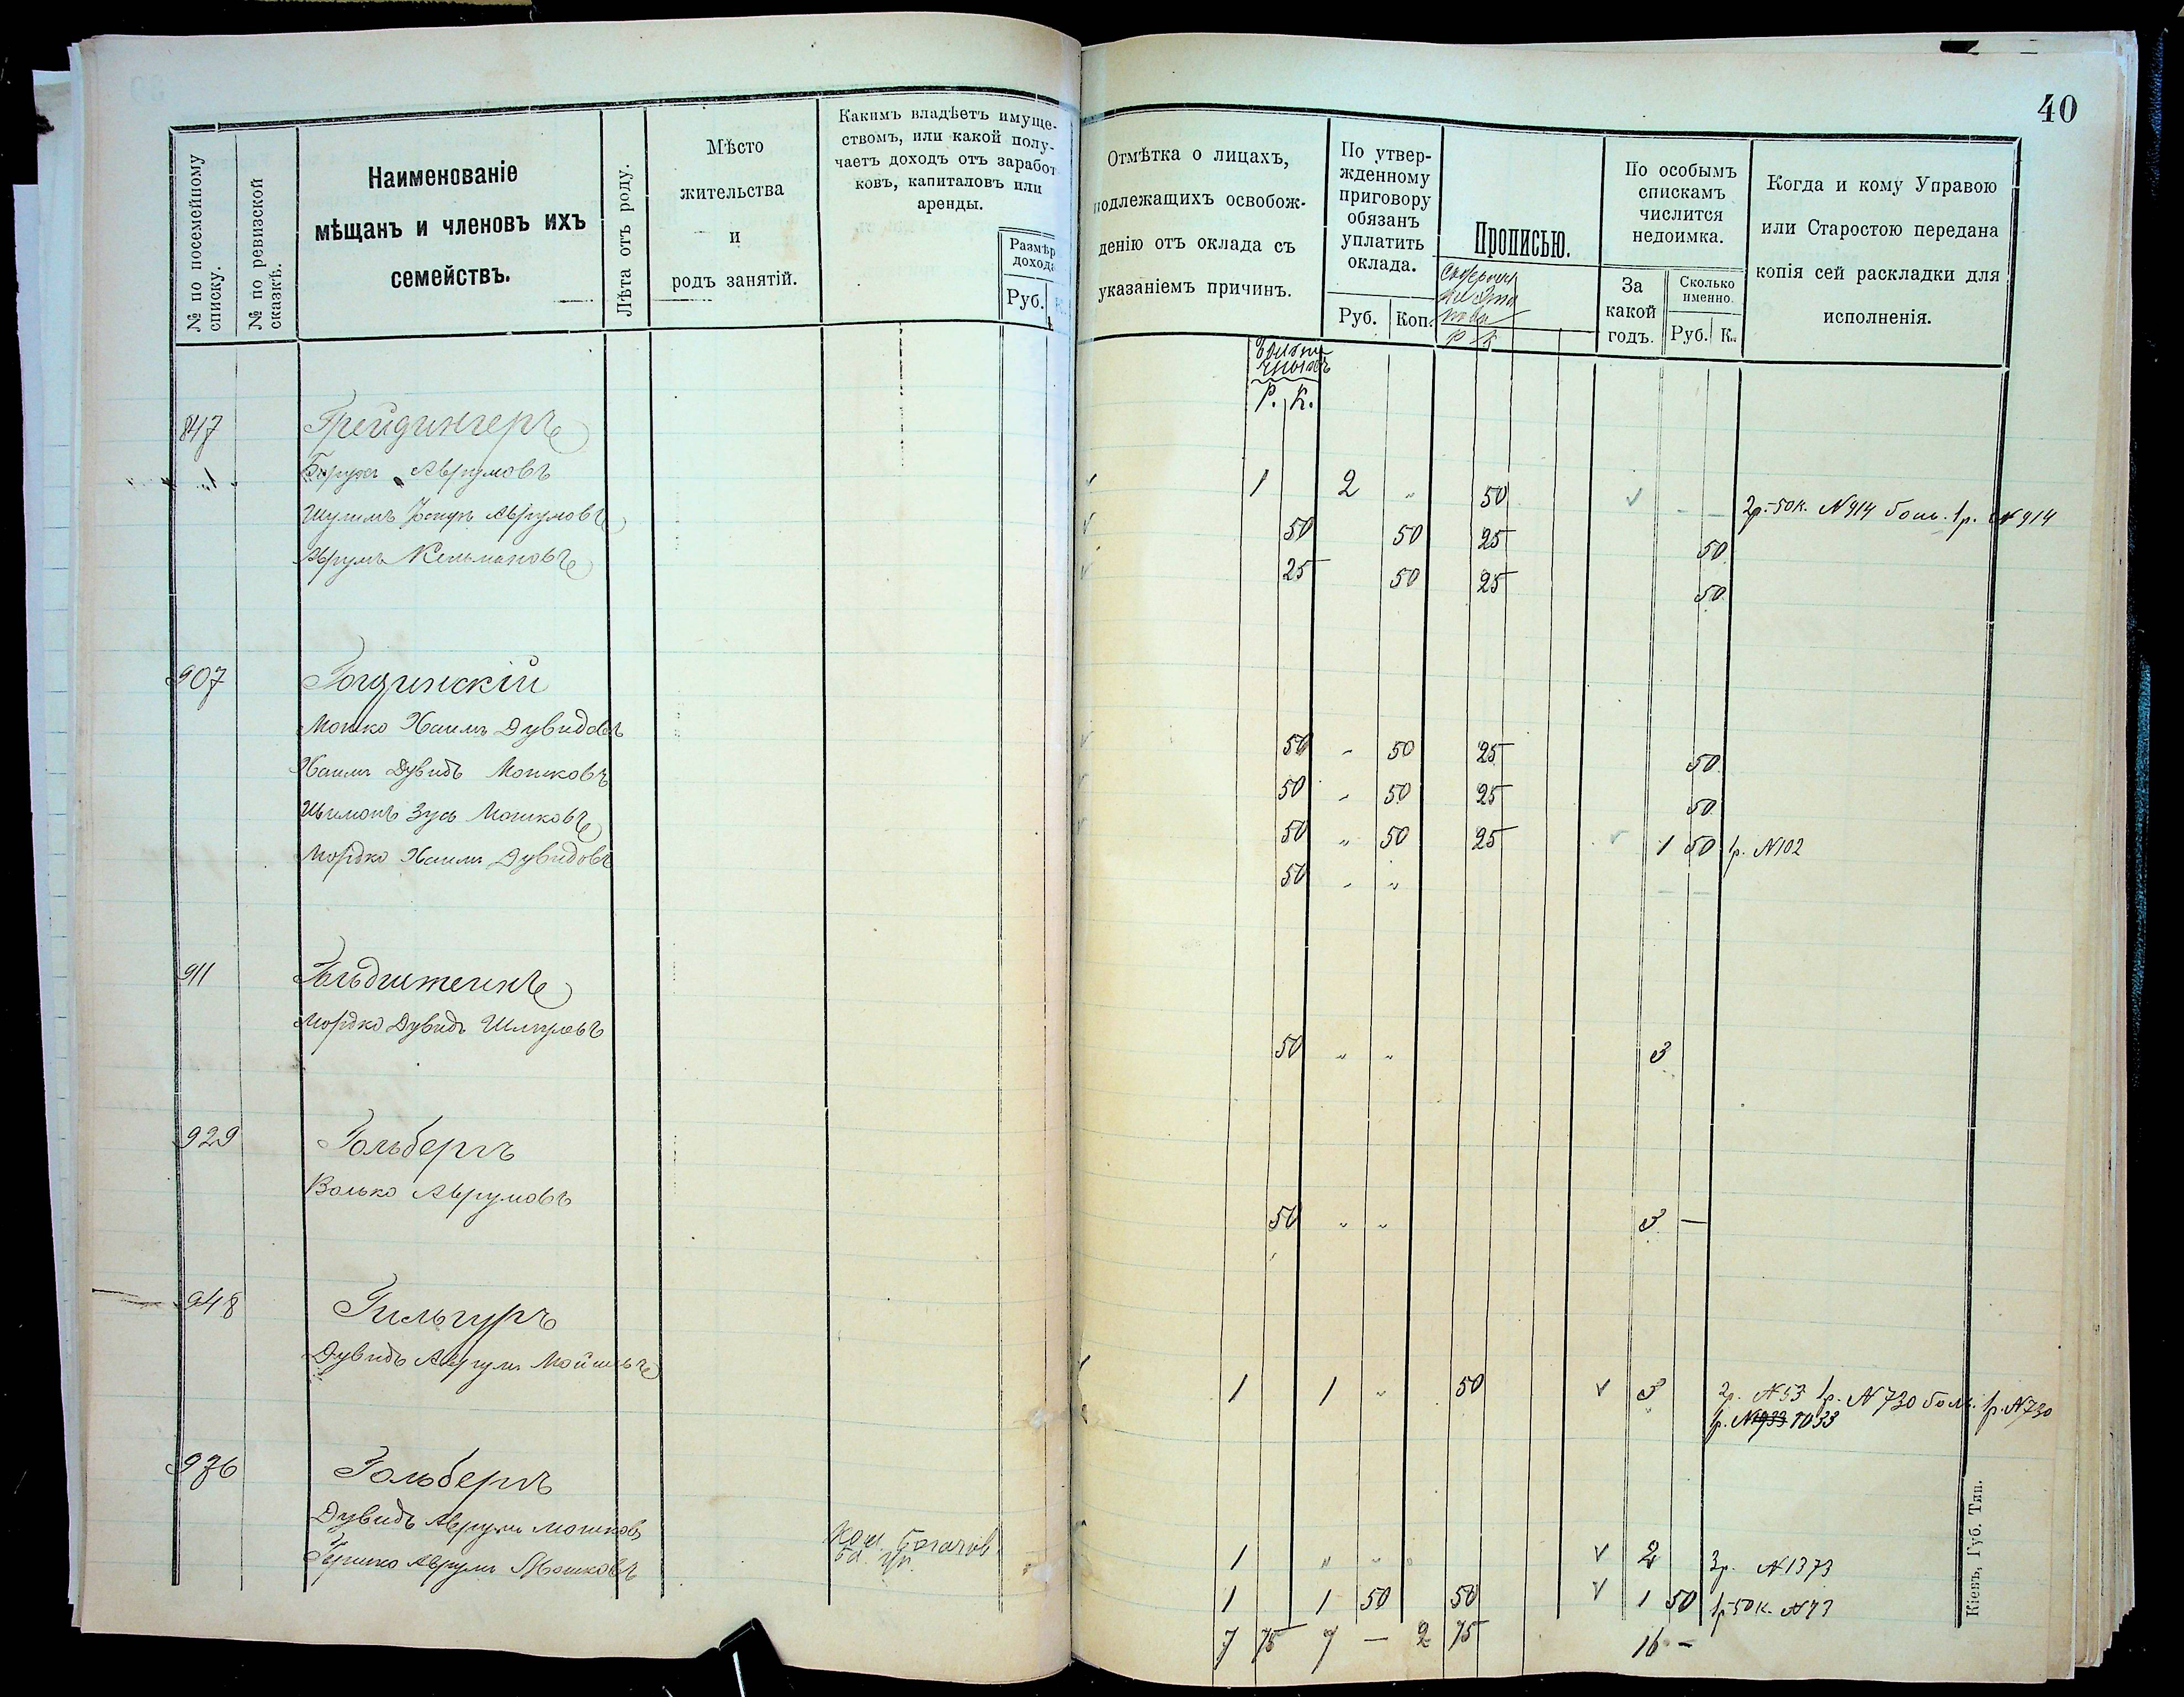 40
№ по посемейному списку.
№ по ревизской сказкѣ.
Наименованіе
мѣщанъ и членовъ ихъ
семействъ.
Лѣта отъ роду.
Мѣсто
жительства
и
родъ занятій.
Какимъ владѣетъ имуще-
ствомъ, или какой полу-
чаетъ доходъ отъ заработ
ковъ, капиталовъ или
аренды.
Размѣр
дохода
Руб. К.
Отмѣтка о лицахъ,
подлежащихъ освобож-
денію отъ оклада съ
указаніемъ причинъ.
По утвер-
жденному
приговору
обязанъ
уплатить
оклада.
Руб. Коп.
Прописью.
Р К
По особымъ
спискамъ
числится
недоимка.
За
какой
годъ.
Сколько
именно.
Руб. К.
Когда и кому Управою
или Старостою передана
копія сей раскладки для
исполненія.
Р. К.
847 Грейдингеръ
Борухъ Аврумовъ 1 2 „ 50 2р.-50к. N914 бол. 1р. N914
Шулимъ Аврумовъ 50 50 25 50
Аврумъ Кельмановъ 25 50 25 50
907
Мошко Хаимъ Дувидовъ 50 „ 50 25 50
Хаимъ Дувидъ Мошковъ 50 „ 50 25 50
Шимонъ Зусь Мошковъ 50 „ 50 25 1 50 1р. N102
Мордко Хаимъ Дувидовъ 50 „ „ — —
911 Гольдштейнъ
Мордко Дувидъ Шмулевъ 50 „ „ 3
929 Гольбергъ
Волько Аврумовъ 50 „ „ 3 —
948 Гильгуръ
Дувидъ Аврумъ Мойшевъ 1 1 „ 50 3 2р. N53 1р. N730 бол. 1р. N730
1р. N933 1033
976 Гольбергъ
Дувидъ Аврумъ Мошковъ 1 „ „ „ 2 3р. N1373
Гершко Аврумъ Мошковъ 1 1 50 50 1 50 1р-50к. N73
7 75 7 — 2 75 16 —
Кіевъ, Губ. Тип.